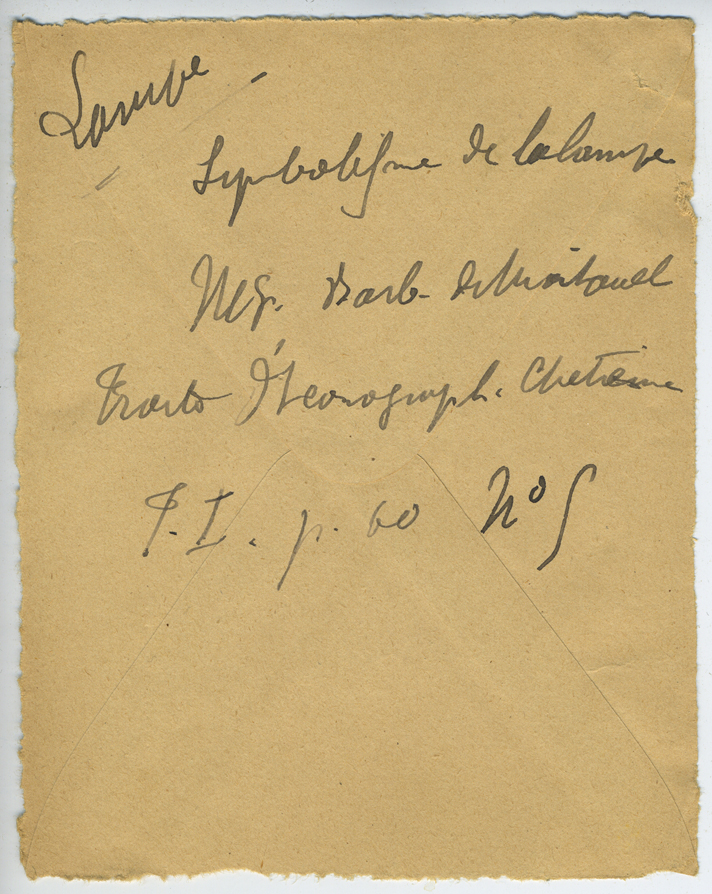 Lampe -
Symbolisme de la lampe
Mgr. Barb. de Montault
Traité d'Iconograph. Chrétienne
T. I. p. 60 N°5